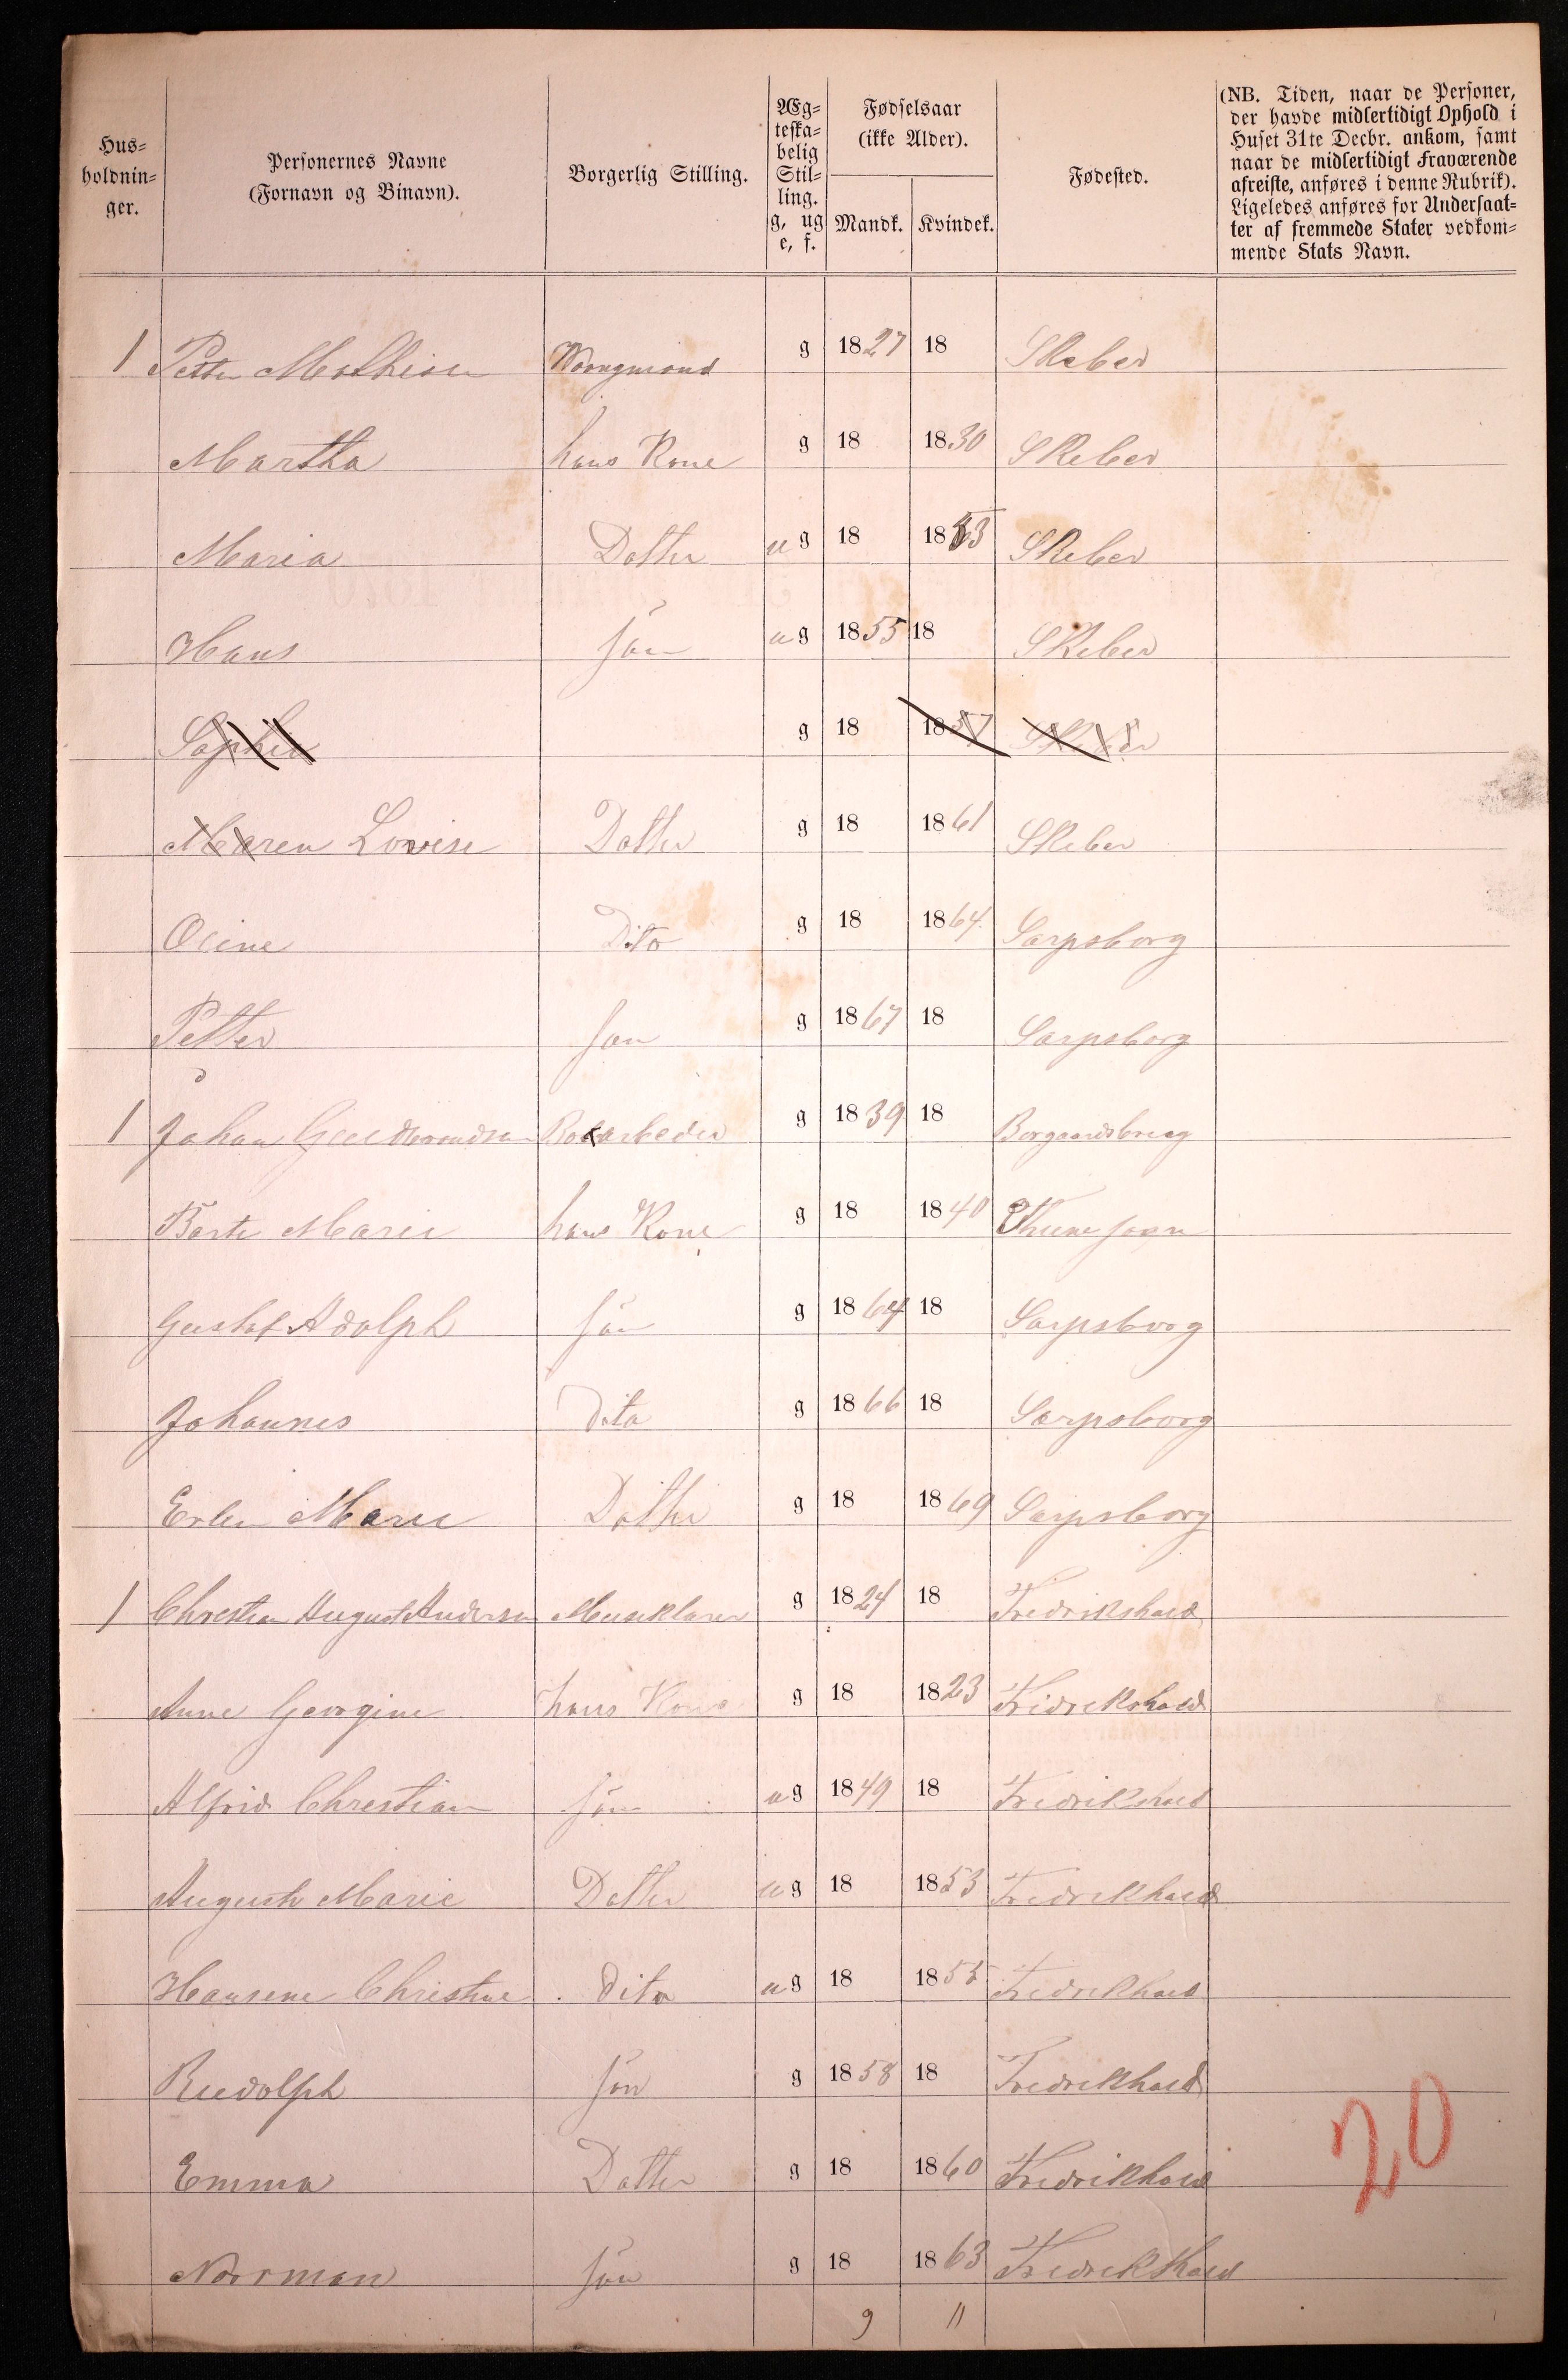 Hus-
holdnin-
ger.
Personernes Navne
(Fornavn og Binavn).
Borgerlig Stilling.
Æg-
teska-
belig
Stil-
ling.
g, ug
e, f.
Fødselsaar
(ikke Alder).
Mandk. Kvindek.
Fødested.
(NB. Tiden, naar de Personer,
der havde midlertidigt Ophold i
Huset 31te Decbr. ankom, samt
naar de midlertidigt Fraværende
afreiste, anføres i denne Rubrik).
Ligeledes anføres for Undersaat-
ter af fremmede Stater vedkom-
mende Stats Navn.
1 Petter Mathisen g 1827 18 Skeber
Martha hans Kone g 18 1830 Skeber
Maria Datter ug 18 1853 Skeber
Hans Søn ug 1855 18 Skeber
Sophie g 18 1857 Skeber
Maren Lovise Datter g 18 1861 Skeber
Oline Dito g 18 1864 Sarpsborg
Petter Søn g 1867 18 Sarpsborg
1 Johan g 1839 18
Marie hans Kone g 18 1840 Thune sogn
Gustaf Adolph Søn g 1864 18 Sarpsborg
Johannes Dito g 1866 18 Sarpsborg
Marie Datter g 18 1869 Sarpsborg
1 Christian August Andersen g 1824 18 Fredrikshald
Anne Georgine hans Kone g 18 1823 Fridrekshald
Alfrid Christian Søn ug 1849 18 Fredrikshald
Auguste Marie Datter ug 18 1853 Fredrekhald
Hansene Christine Dito ug 18 1855 Fredrekhald
Rudolph Søn g 1858 18 Fredrekhald
Emma Datter g 18 1860 Fredrikhald
Norman Søn g 18 1863 Fredrekshald
9 11
20